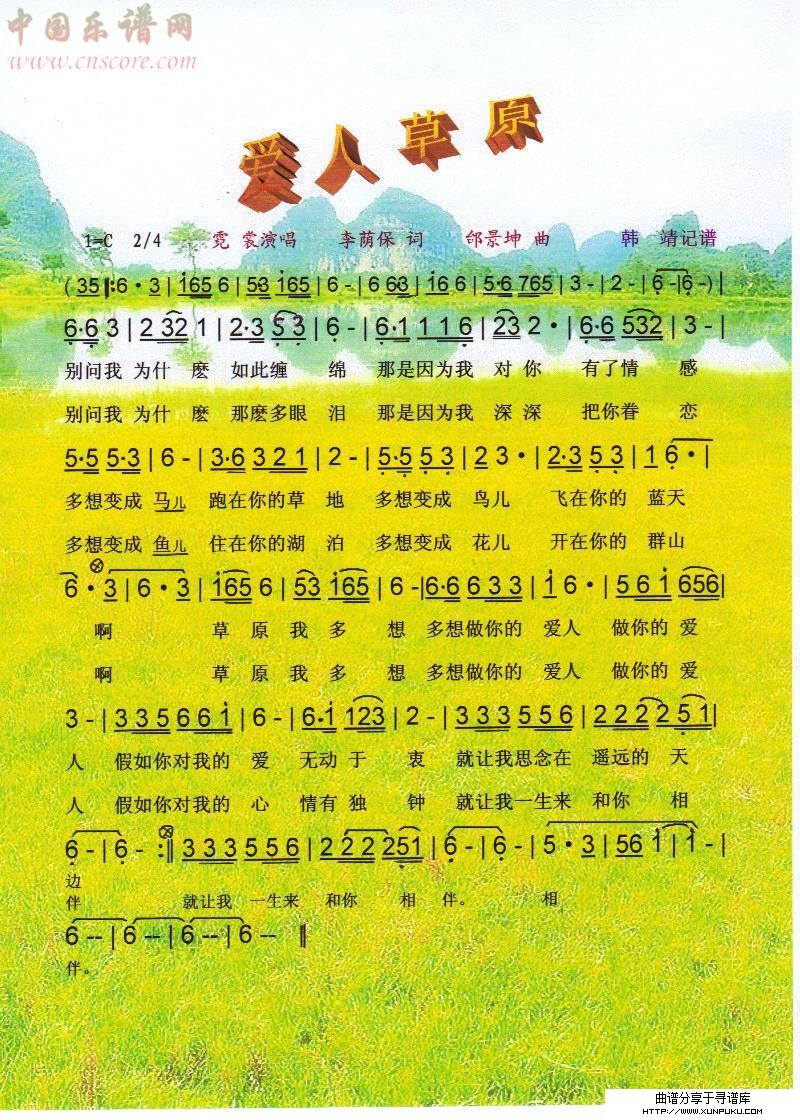 中国乐谱网
www.cnscore.com
爱人草原
1=C 2/4 霓裳演唱 李荫保 词 邰景坤 曲 韩 靖记谱
( 35 |: 6 · 3 | 165 6 | 53 165 | 6 - | 6 63 | 16 6 | 5·6 765 | 3 - | 2 - | 6 -| 6 -) |
6·6 3 | 2 32 1 | 2·3 5 3 | 6 - | 6·1 1 1 6 | 23 2 · | 6·6 532 | 3 - |
别问我 为什 麽 如此缠 绵 那是因为我 对 你 有了情 感
别问我 为什 麽 那麽多眼 泪 那是因为我 深 深 把你眷 恋
5·5 5·3 | 6 - | 3·6 3 2 1 | 2 - | 5·5 5 3 | 2 3 · | 2·3 5 3 | 1 6 · |
多想变成 马儿 跑在你的草 地 多想变成 鸟儿 飞在你的 蓝天
多想变成 鱼儿 住在你的湖 泊 多想变成 花儿 开在你的 群山
6 · 3 | 6 · 3 | 165 6 | 53 165 | 6 - |6·6 6 3 3 | 1 6 · | 5 6 1 656 |
啊 草 原 我 多 想 多想做你的 爱人 做你的 爱
啊 草 原 我 多 想 多想做你的 爱人 做你的 爱
3 - | 3 3 5 6 6 1 | 6 - | 6·1 123 | 2 - | 3 3 3 5 5 6 | 2 2 2 2 5 1 |
人 假如你对我的 爱 无动 于 衷 就让我思念在 遥远的 天
人 假如你对我的 心 情有 独 钟 就让我一生来 和你 相
6 - | 6 - :‖ 3 3 3 5 5 6 | 2 2 2 251 | 6 - | 6 - | 5 · 3 | 56 1 | 1 - |
边
伴 就让我 一生来 和你 相 伴。 相
6 -- | 6 -- | 6 -- | 6 -- ‖
伴。
曲谱分享于寻谱库
HTTP://WWW.XUNPUKU.COM